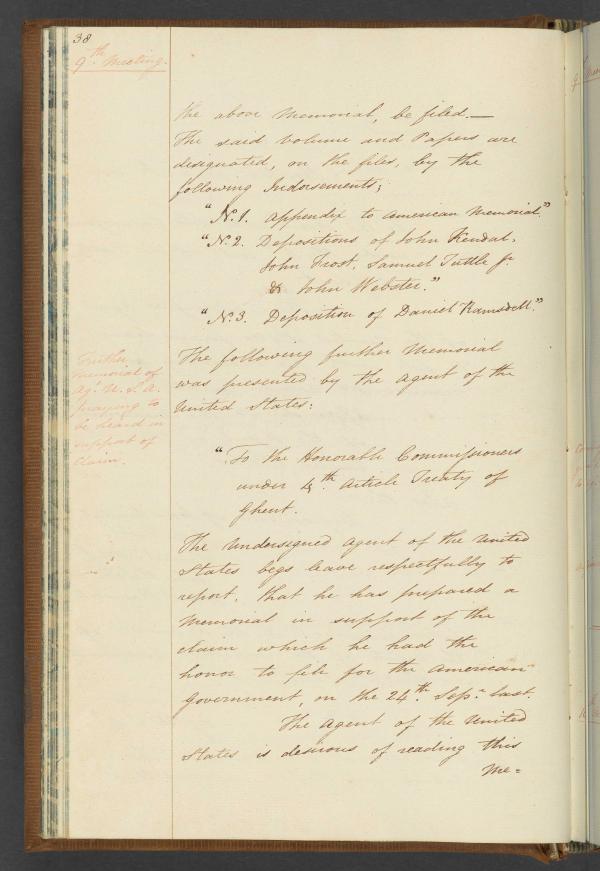 38
9th Meeting.
the above Memorial, be filed.—
The said Volume and Papers are
designated, on the files, by the
following Indorsements;
"No. 1. Appendix to American Memorial."
"No. 2. Depositions of John Kendal,
John Frost, Samuel Tuttle Jr.
& John Webster."
"No. 3. Deposition of Daniel Ramsdell."
Further
Memorial of
Agt. U. S. A.
praying to
be heard in
support of
Claim.
The following further Memorial
was presented by the Agent of the
United States:
"To the Honorable Commissioners
under 4th. Article Treaty of
Ghent.
The Undersigned Agent of the United
States begs leave respectfully to
report, that he has prepared a
Memorial in support of the
claim which he had the
honor to file for the American
Government, on the 24th. Sepr. last.
The Agent of the United
States is desirous of reading this
Me=